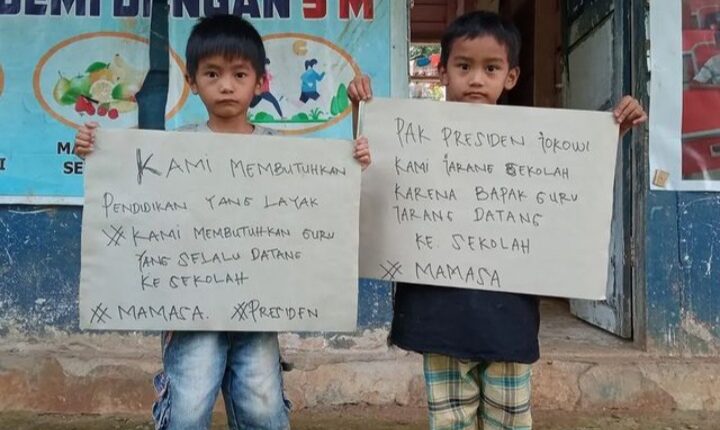 DEMI DENGAN 3 M
KAMI MEMBUTUHKAN
PENDIDIKAN YANG LAYAK
# KAMI MEMBUTUHKAN GURU
YANG SELALU DATANG
KE SEKOLAH
# MAMASA. #PRESIDEN
PAK PRESIDEN JOKOWI
KAMI JARANG SEKOLAH
KARENA BAPAK GURU
JARANG DATANG
KE. SEKOLAH
# MAMASA